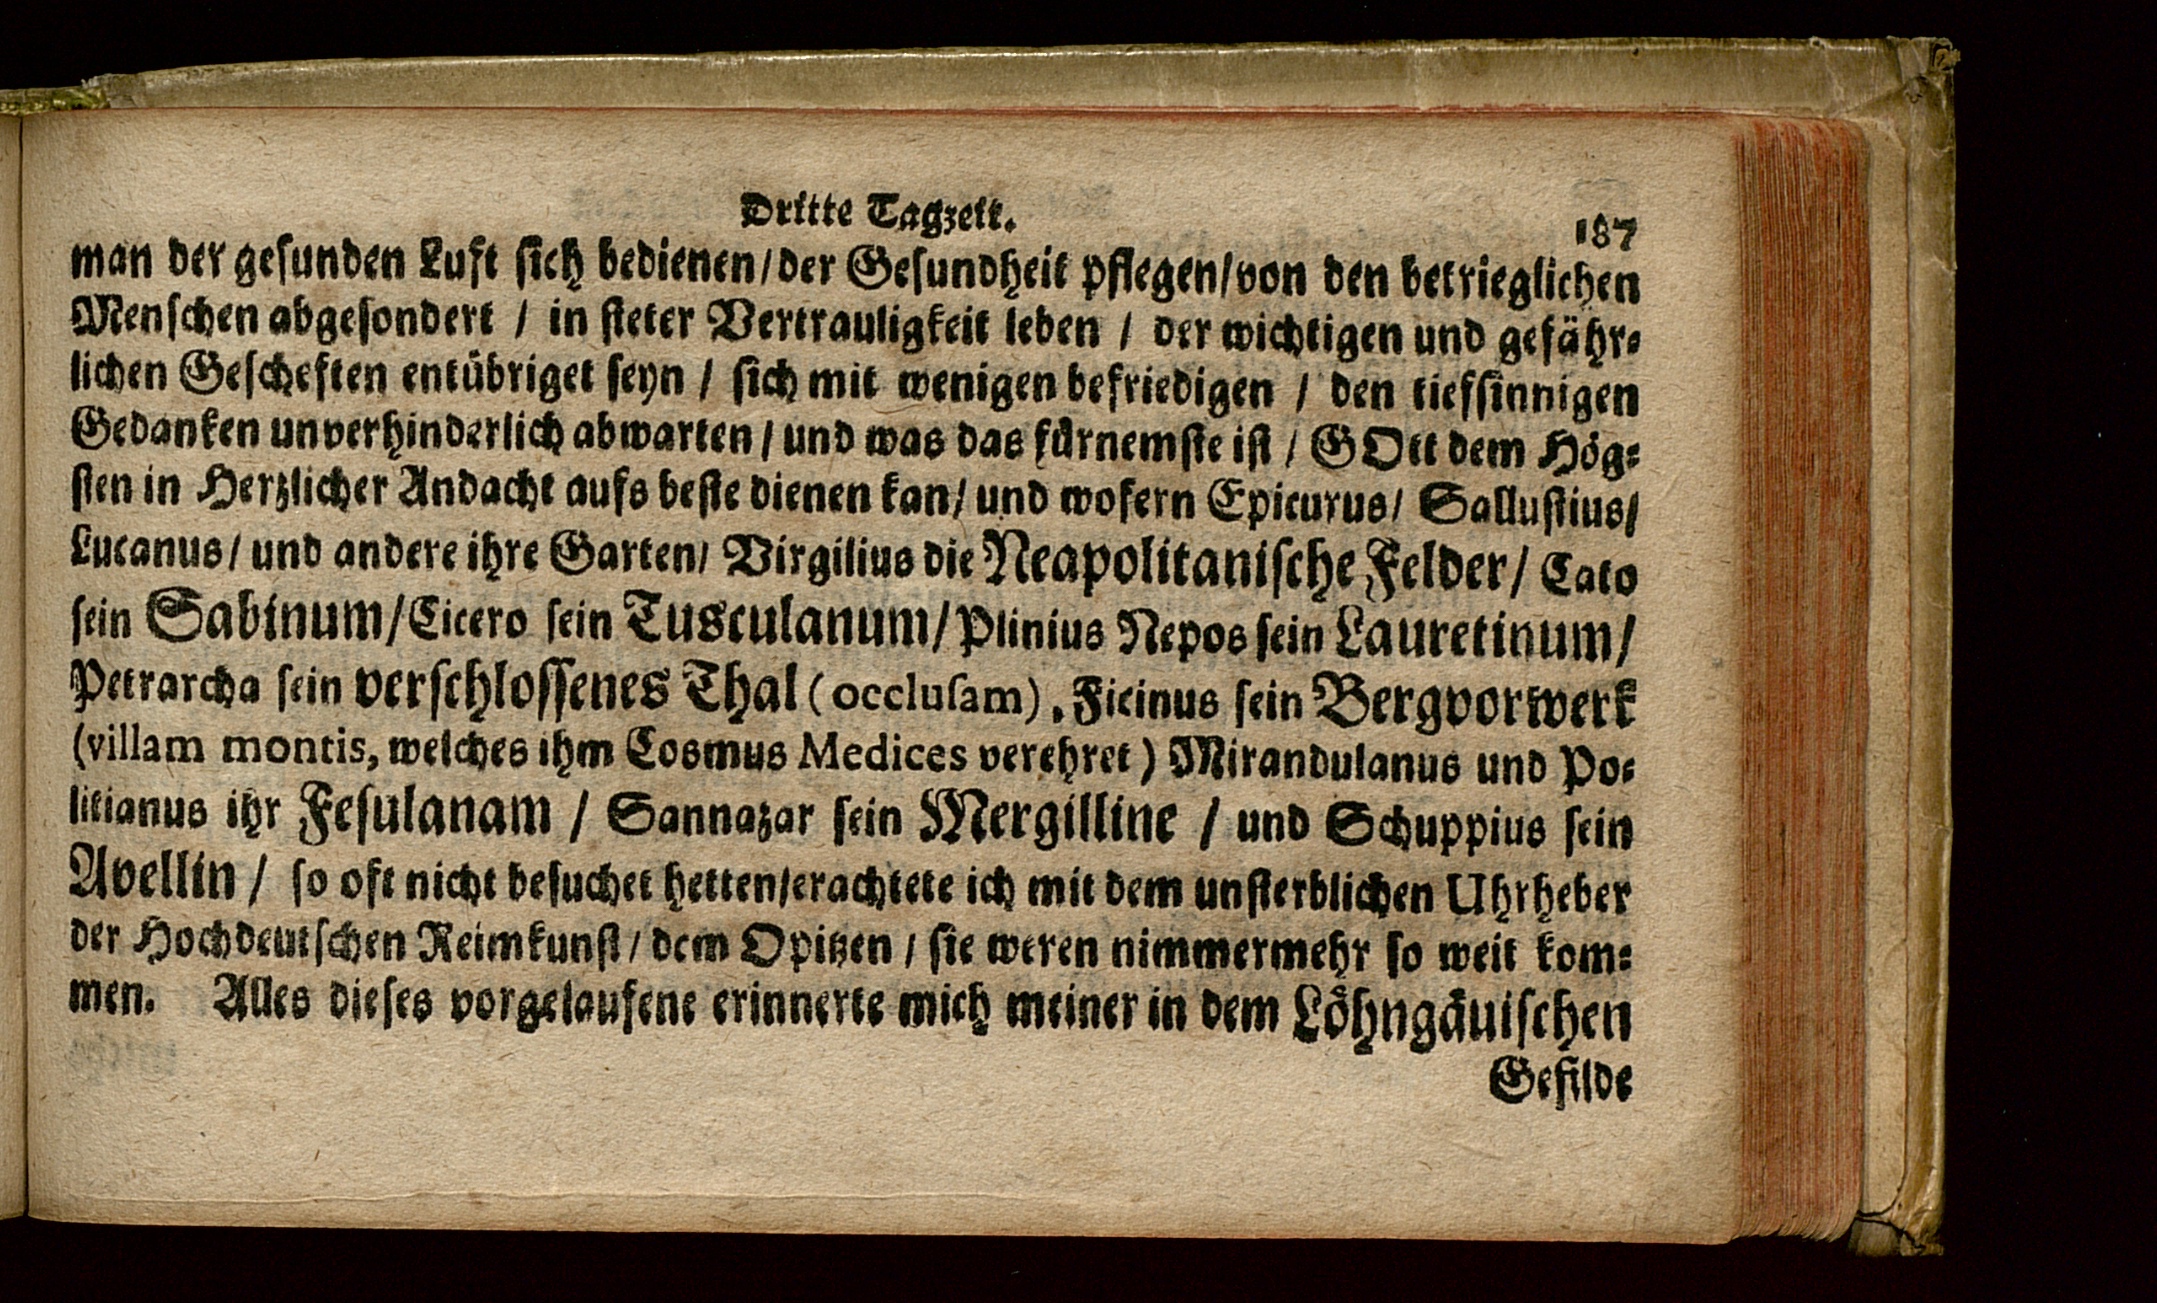 Dritte Tagzeit.
187
man der gesunden Luft sich bedienen/der Gesundheit pflegen/von den betrieglichen
Menschen abgesondert / in steter Vertrauligkeit leben / der wichtigen und gefähr-
lichen Gescheften entübriget seyn / sich mit wenigen befriedigen / den tiefsinnigen
Gedanken unverhinderlich abwarten / und was das fürnemste ist / GOtt dem Hög-
sten in Hertzlicher Andacht aufs beste dienen kan/ und wofern Epicurus/ Sallustius/
Lucanus/ und andere ihre Garten/ Virgilius die Neapolitanische Felder/ Cato
sein Sabinum/Cicero sein Tusculanum/Plinius Nepos sein Lauretinum/
Petrarcha sein verschlossenes Thal ( occlusam) , Ficinus sein Bergvorwerk
(villam montis, welches ihm Cosmus Medices verehret ) Mirandulanus und Po-
litianus ihr Fesulanam / Sannazar sein Mergilline / und Schuppius sein
Avellin / so oft nicht besuchet hetten/erachtete ich mit dem unsterblichen Uhrheber
der Hochdeutschen Reimkunst/ dem Opitzen / sie weren nimmermehr so weit kom-
men. Alles dieses vorgelaufene erinnerte mich meiner in dem Löhngäuischen
Gefilde